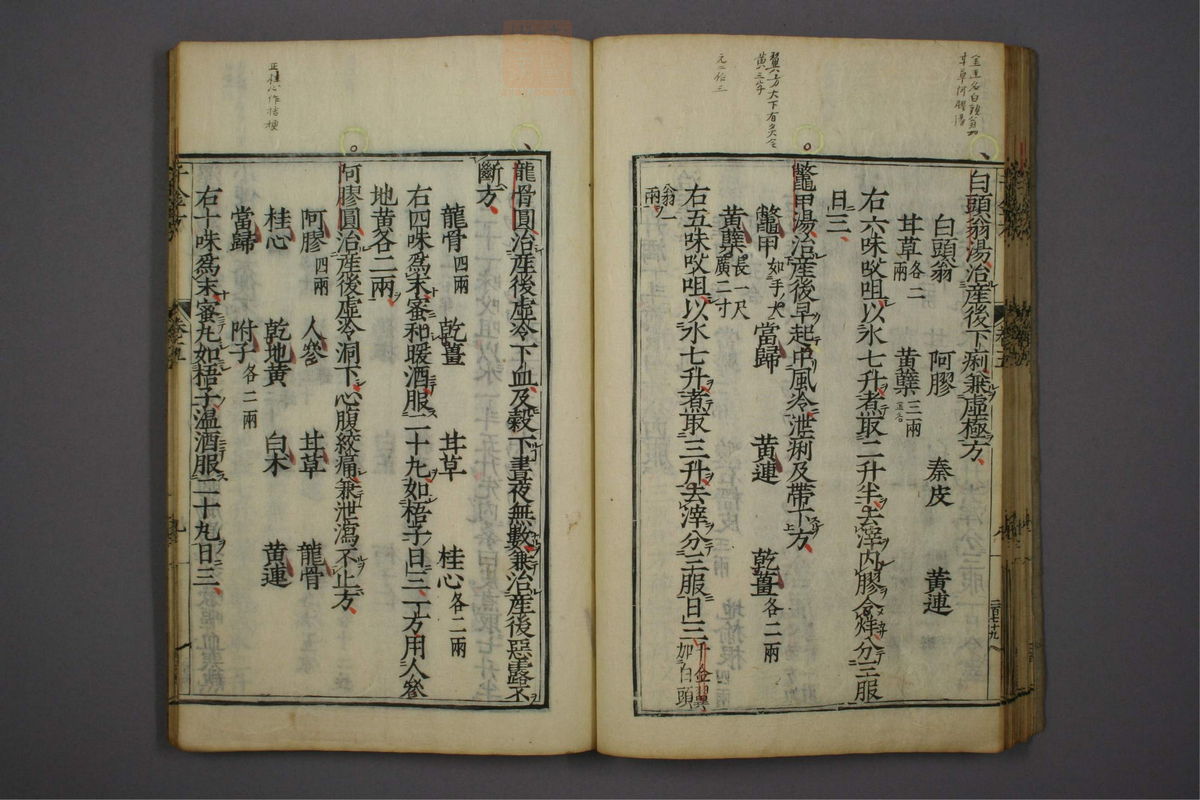 白頭翁湯治産後下痢兼虛極方
白頭翁 阿膠 秦皮 黃連
甘草各二兩 黃蘗三兩
右六味㕮咀以水七升煮取二升半去滓内膠令烊分三服
日三
鼈甲湯治産後早起中風冷泄痢及帶下方
鼈甲如手大 當歸 黃連 乾薑各二兩
黃蘗長一尺廣二寸
右五味㕮咀以水七升煮取三升去滓分三服日三千金翼加白頭
翁一兩
龍骨圓治産後虛冷下血及穀下晝夜無數兼治産後惡露不
斷方
龍骨四兩 乾薑 甘草 桂心各二兩
右四味爲末蜜和暖酒服二十丸如梧子日三一方用人參
地黃各二兩
阿膠圓治産後虛冷洞下心腹絞痛兼泄瀉不止方
阿膠四兩 人參 甘草 龍骨
桂心 乾地黃 白朮 黃連
當歸 附子各二兩
右十味爲末蜜丸如梧子温酒服二十丸日三